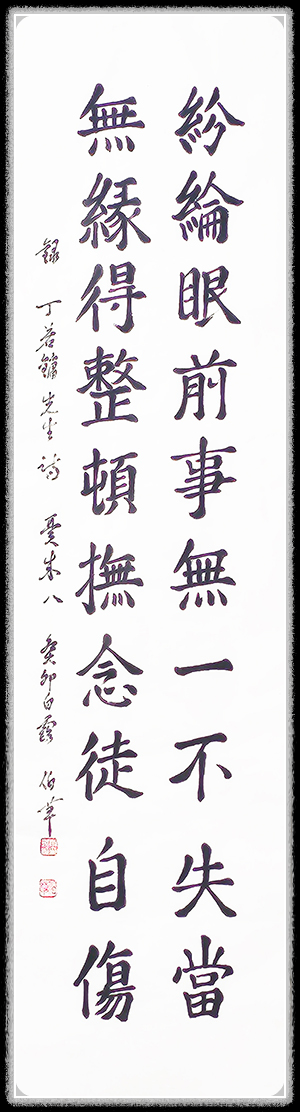 紛綸眼前事無一不失當
無緣得整頓撫念徒自傷
錄 丁若鏞先生詩 憂來八 癸卯白露 伯華